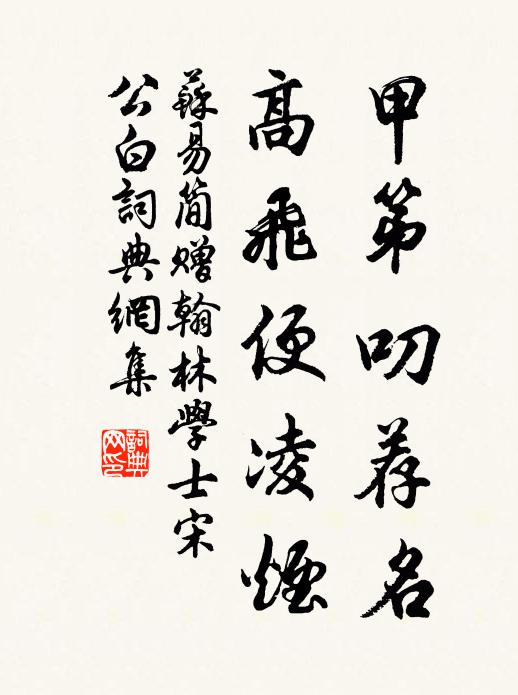 甲第叨荐名
高飛便凌煙
蘇易简赠翰林學士宋
公白詞典網集
詞典
网印